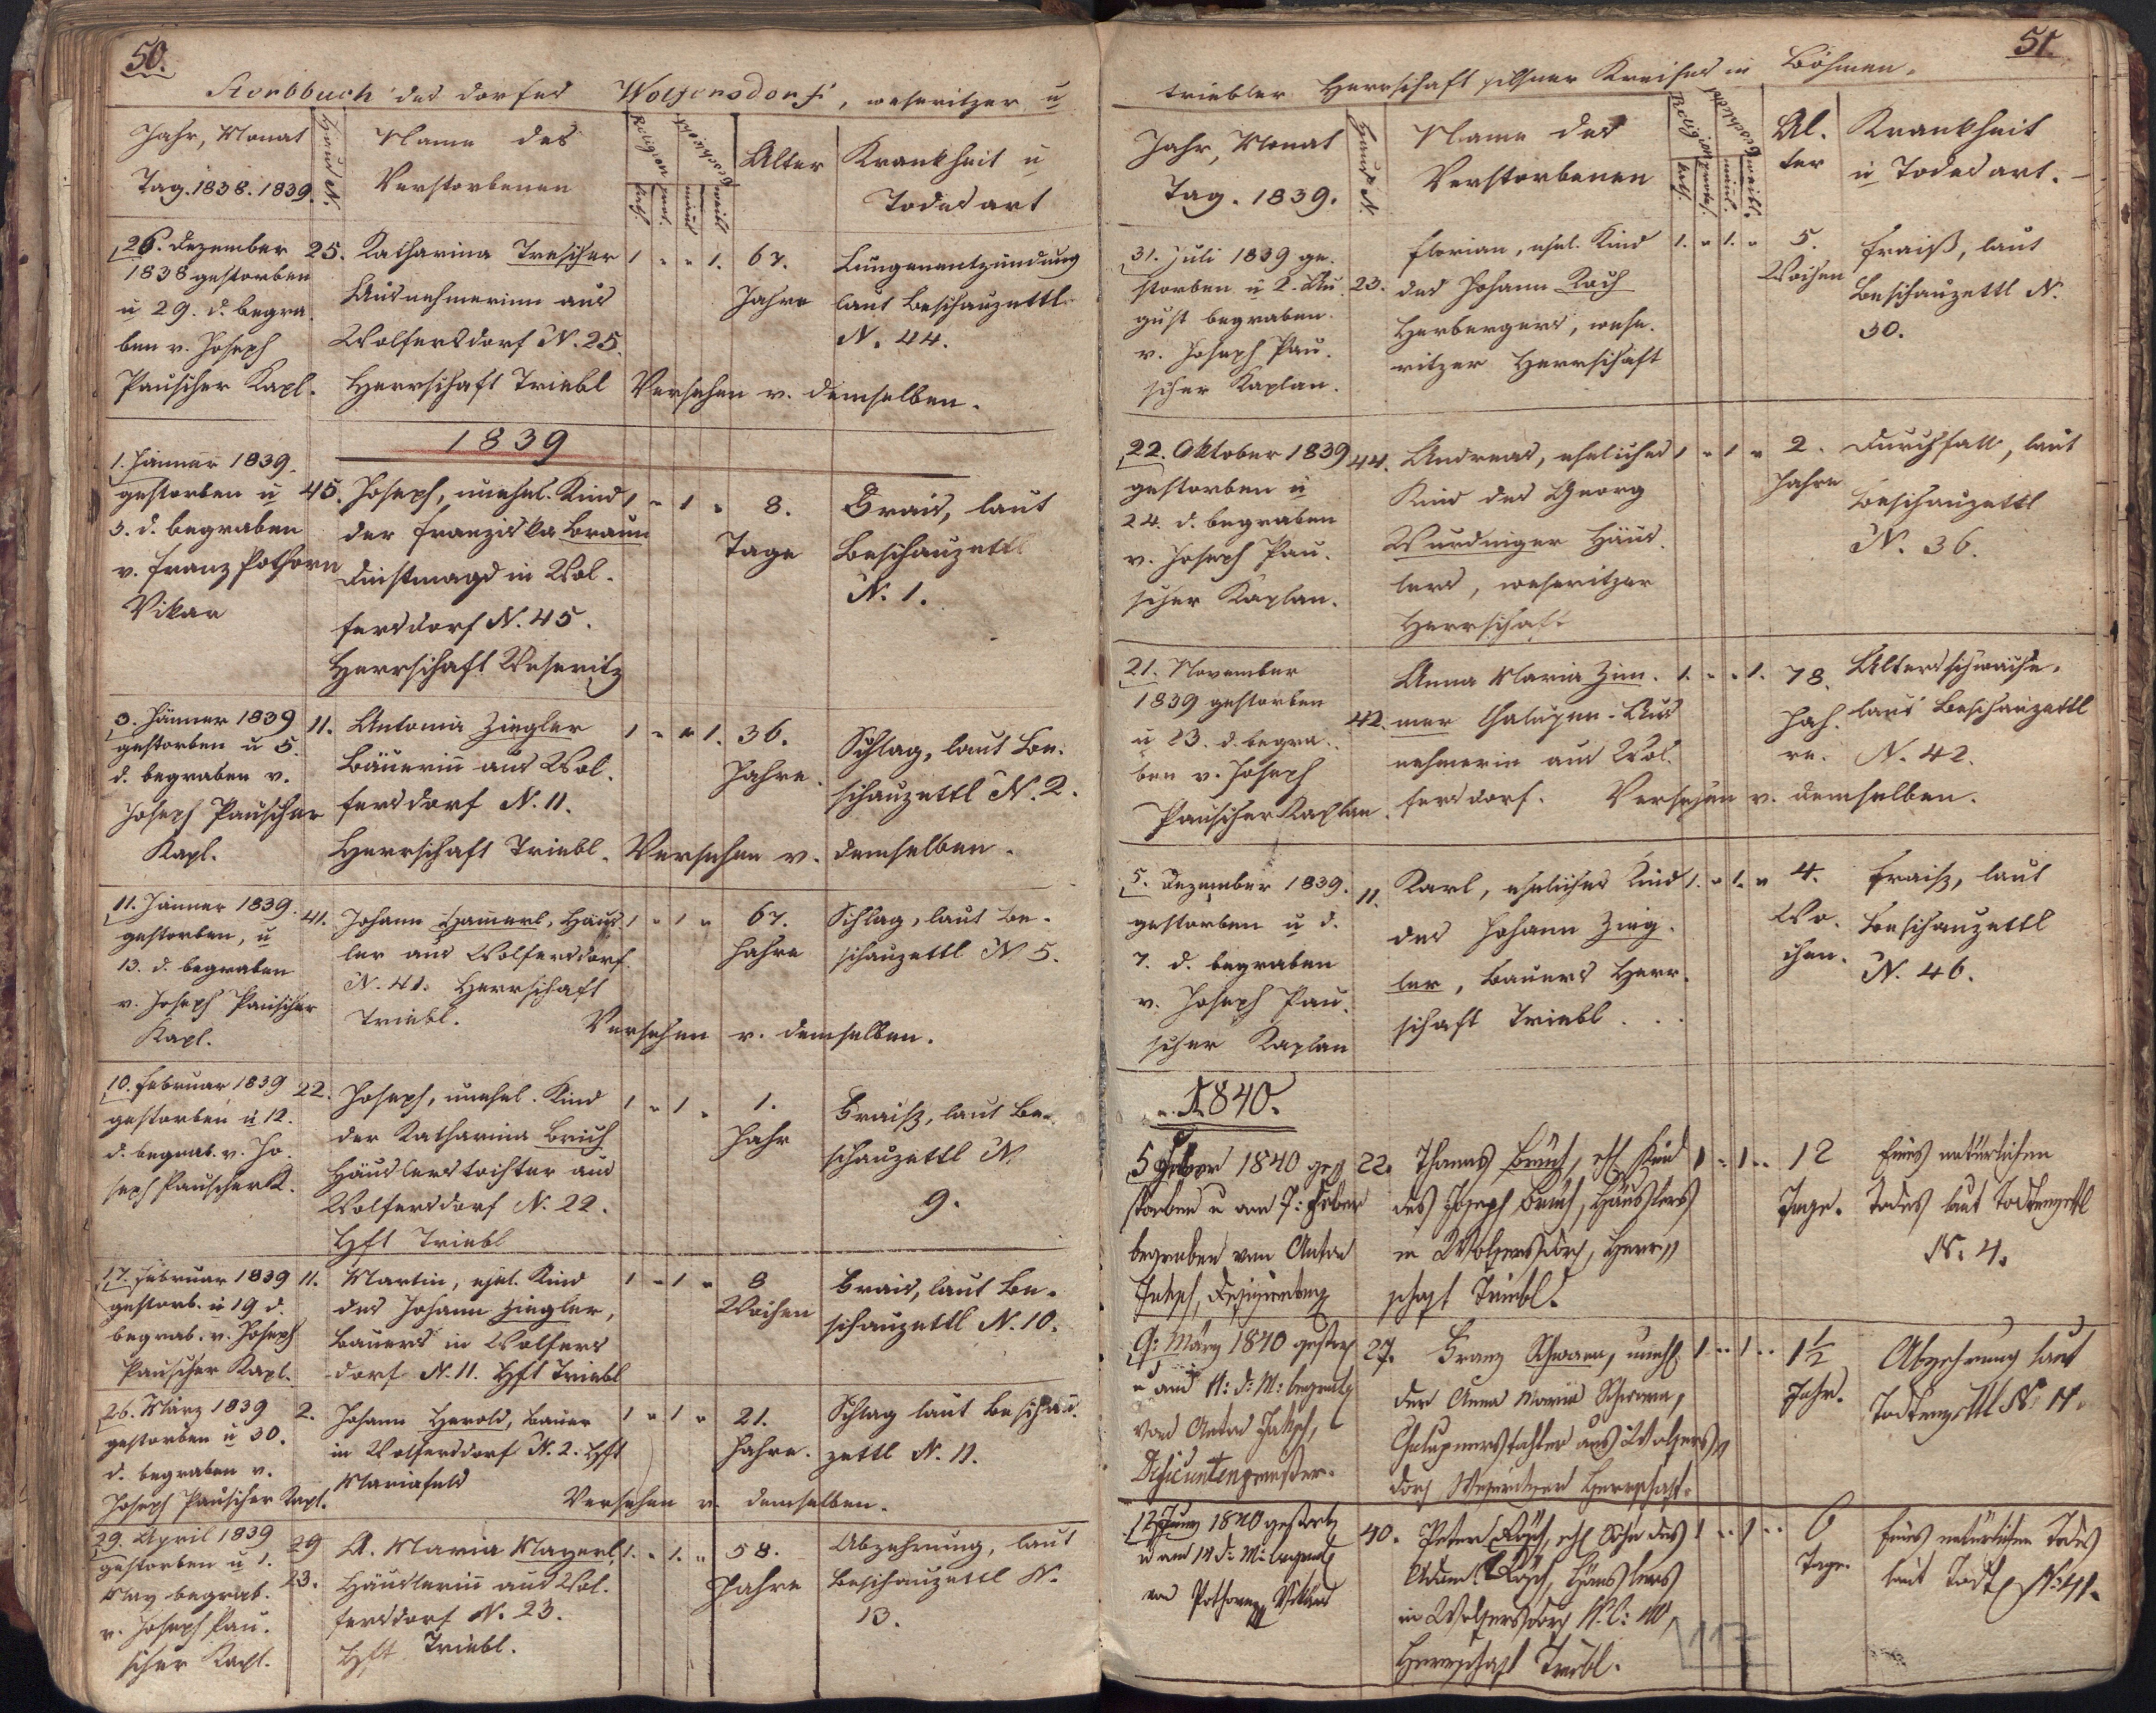 50.
Sterbbuch des Dorfes Wolfersdorf, weseritzer u
Jahr, Monat
Tag. 1838. 1839.
Haus N.
Name des
Verstorbenen
Religion
kath.
prot.
Geschlecht
männl
weibl
Alter
Krankheit u
Todesart
26. Dezember
1838 gestorben
u 29. d. begra
ben v. Joseph
Pauscher Kapl.
25.
Katharina Trescher
Ausnehmerinn aus
Wolfersdorf N. 25.
Herrschaft Triebl
1 " " 1.
67.
Jahre
Lungenentzündung
laut Beschauzettl
N. 44.
Versehen v. demselben.
1839
1. Jänner 1839.
gestorben u
3. d. begraben
v. Franz Pothorn
Vikar
45.
Joseph, unehel. Kind
der Franziska Braun
Dinstmagd in Wol.
fersdorf N. 45.
Herrschaft Weseritz
1 " 1 "
8.
Tage
Frais, laut
Beschauzettl
N. 1.
3. Jänner 1839
gestorben u 5.
d. begraben v.
Joseph Pauscher
Kapl.
11.
Antonia Ziegler
Bäuerin aus Wol.
fersdorf N. 11.
Herrschaft Triebl.
1 " " 1.
36.
Jahre.
Schlag, laut Be.
schauzettl N. 2.
Versehen v. demselben.
11. Jänner 1839.
gestorben, u
13. d. begraben
v. Joseph Pauscher
Kapl.
41.
Johann Hamerl, Häus
ler aus Wolfersdorf.
N. 41. Herrschaft
Triebl.
1 " 1 "
67.
Jahre
Schlag, laut Be.
schauzettl N 5.
Versehen v. demselben.
10. Februar 1839
gestorben u 12.
d. begrab. v. Jo.
seph Pauscher K.
22.
Joseph, unehel. Kind
der Katharina Bruch
Häuslerstochter aus
Wolfersdorf N. 22.
Hft Triebl
1 " 1 "
1.
Jahr
Fraiß, laut Be.
schauzettl N.
9.
17. Februar 1839
gestorb. u 19 d.
begrab. v. Joseph
Pauscher Kapl.
11.
Martin, ehel. Kind
des Johann Ziegler,
Bauers in Wolfers
dorf N. 11. Hft Triebl
1 " 1 "
8
Wochen
Frais, laut Be.
schauzettl N. 10.
26. März 1839
gestorben u 30.
d. begraben v.
Joseph Pauscher Kapl.
2.
Johann Herold, Bauer
in Wolfersdorf N. 2. Hft
Mariafeld
1 " 1 "
21.
Jahre.
Schlag laut Beschau.
zettl N. 11.
Versehen v. demselben.
29. April 1839
gestorben u 1.
May begrab.
v. Joseph Pau.
scher Kapl.
29
23.
A. Maria Mayerl,
Häuslerinn aus Wol.
fersdorf N. 23.
Hft Triebl.
1. " 1. "
58.
Jahre
Abzehrung, laut
Beschauzettl N.
13.
51.
triebler Herrschaft pilsner Kreises in Böhmen.
Jahr, Monat
Tag. 1839.
Haus N.
Name des
Verstorbenen
Religion
kath.
protest.
Geschlecht
männl.
weibl.
Al.
ter
Krankheit
u Todesart.
31. Juli 1839 ge.
storben u 2. Au
gust begraben.
v. Joseph Pau.
scher Kaplan.
23.
Florian, ehel. Kind
des Johann Koch
Herbergers, wese.
ritzer Herrschaft
1. " 1. "
5.
Wochen
Fraiß, laut
Beschauzettl N.
30.
22. Oktober 1839
gestorben u
24. d. begraben
v. Joseph Pau.
scher Kaplan.
44.
Andreas, eheliches
Kind des Georg
Wurdinger Häus.
lers, weseritzer
Herrschaft
1 " 1 "
2.
Jahre
Durchfall, laut
Beschauzettl
N. 36.
21. November
1839 gestorben
u 23. d. begra.
ben v. Joseph
Pauscher Kaplan.
42.
Anna Maria Zim.
mer Chalupen-Aus
nehmerin aus Wol.
fersdorf.
1. " " 1.
78.
Jah.
re.
Altersschwäche,
laut Beschauzettl
N. 42.
Versehen v. demselben.
5. Dezember 1839.
gestorben u d.
7. d. begraben
v. Joseph Pau.
scher Kaplan
11.
Karl, eheliches Kind
des Johann Zieg.
ler, Bauers Herr.
schaft Triebl . . .
1. " 1. "
4.
Wo.
chen.
Fraiß, laut
Beschauzettl
N. 46.
1840.
5 Feber 1840 ge
storben u am 7: Feber
begraben von Anton
22.
Thomas Bruch, ehl Kind
des Joseph Bruch, Häuslers
in Wolfersdorf, Herr
schaft Triebl.
1 " 1 "
12
Tage.
Eines natürlichen
Todes laut Todtenzettl
N: 4.
9: März 1840 gestor
u am 11: d: M: begrab
von Anton
27.
Franz Schwarm, unehl.
der Anna Maria Schwarm,
Chalupnerstochter aus Wolfers
dorf Weseritzer Herrschaft.
1 " 1 "
1 1/2
Jahr.
Abzehrung laut
Todtenzettl N: 11.
12 Juny 1840 gestorb
u am 14 d: M: begrab
von Pothorn Vikar
40.
Peter Rösch, ehl Sohn des
Adam Rösch, Häuslers
in Wolfersdorf N.C: 40
Herrschaft Triebl.
1 " 1 "
6
Tage.
Eines natürlichen Todes
laut Todtz N: 41.
117